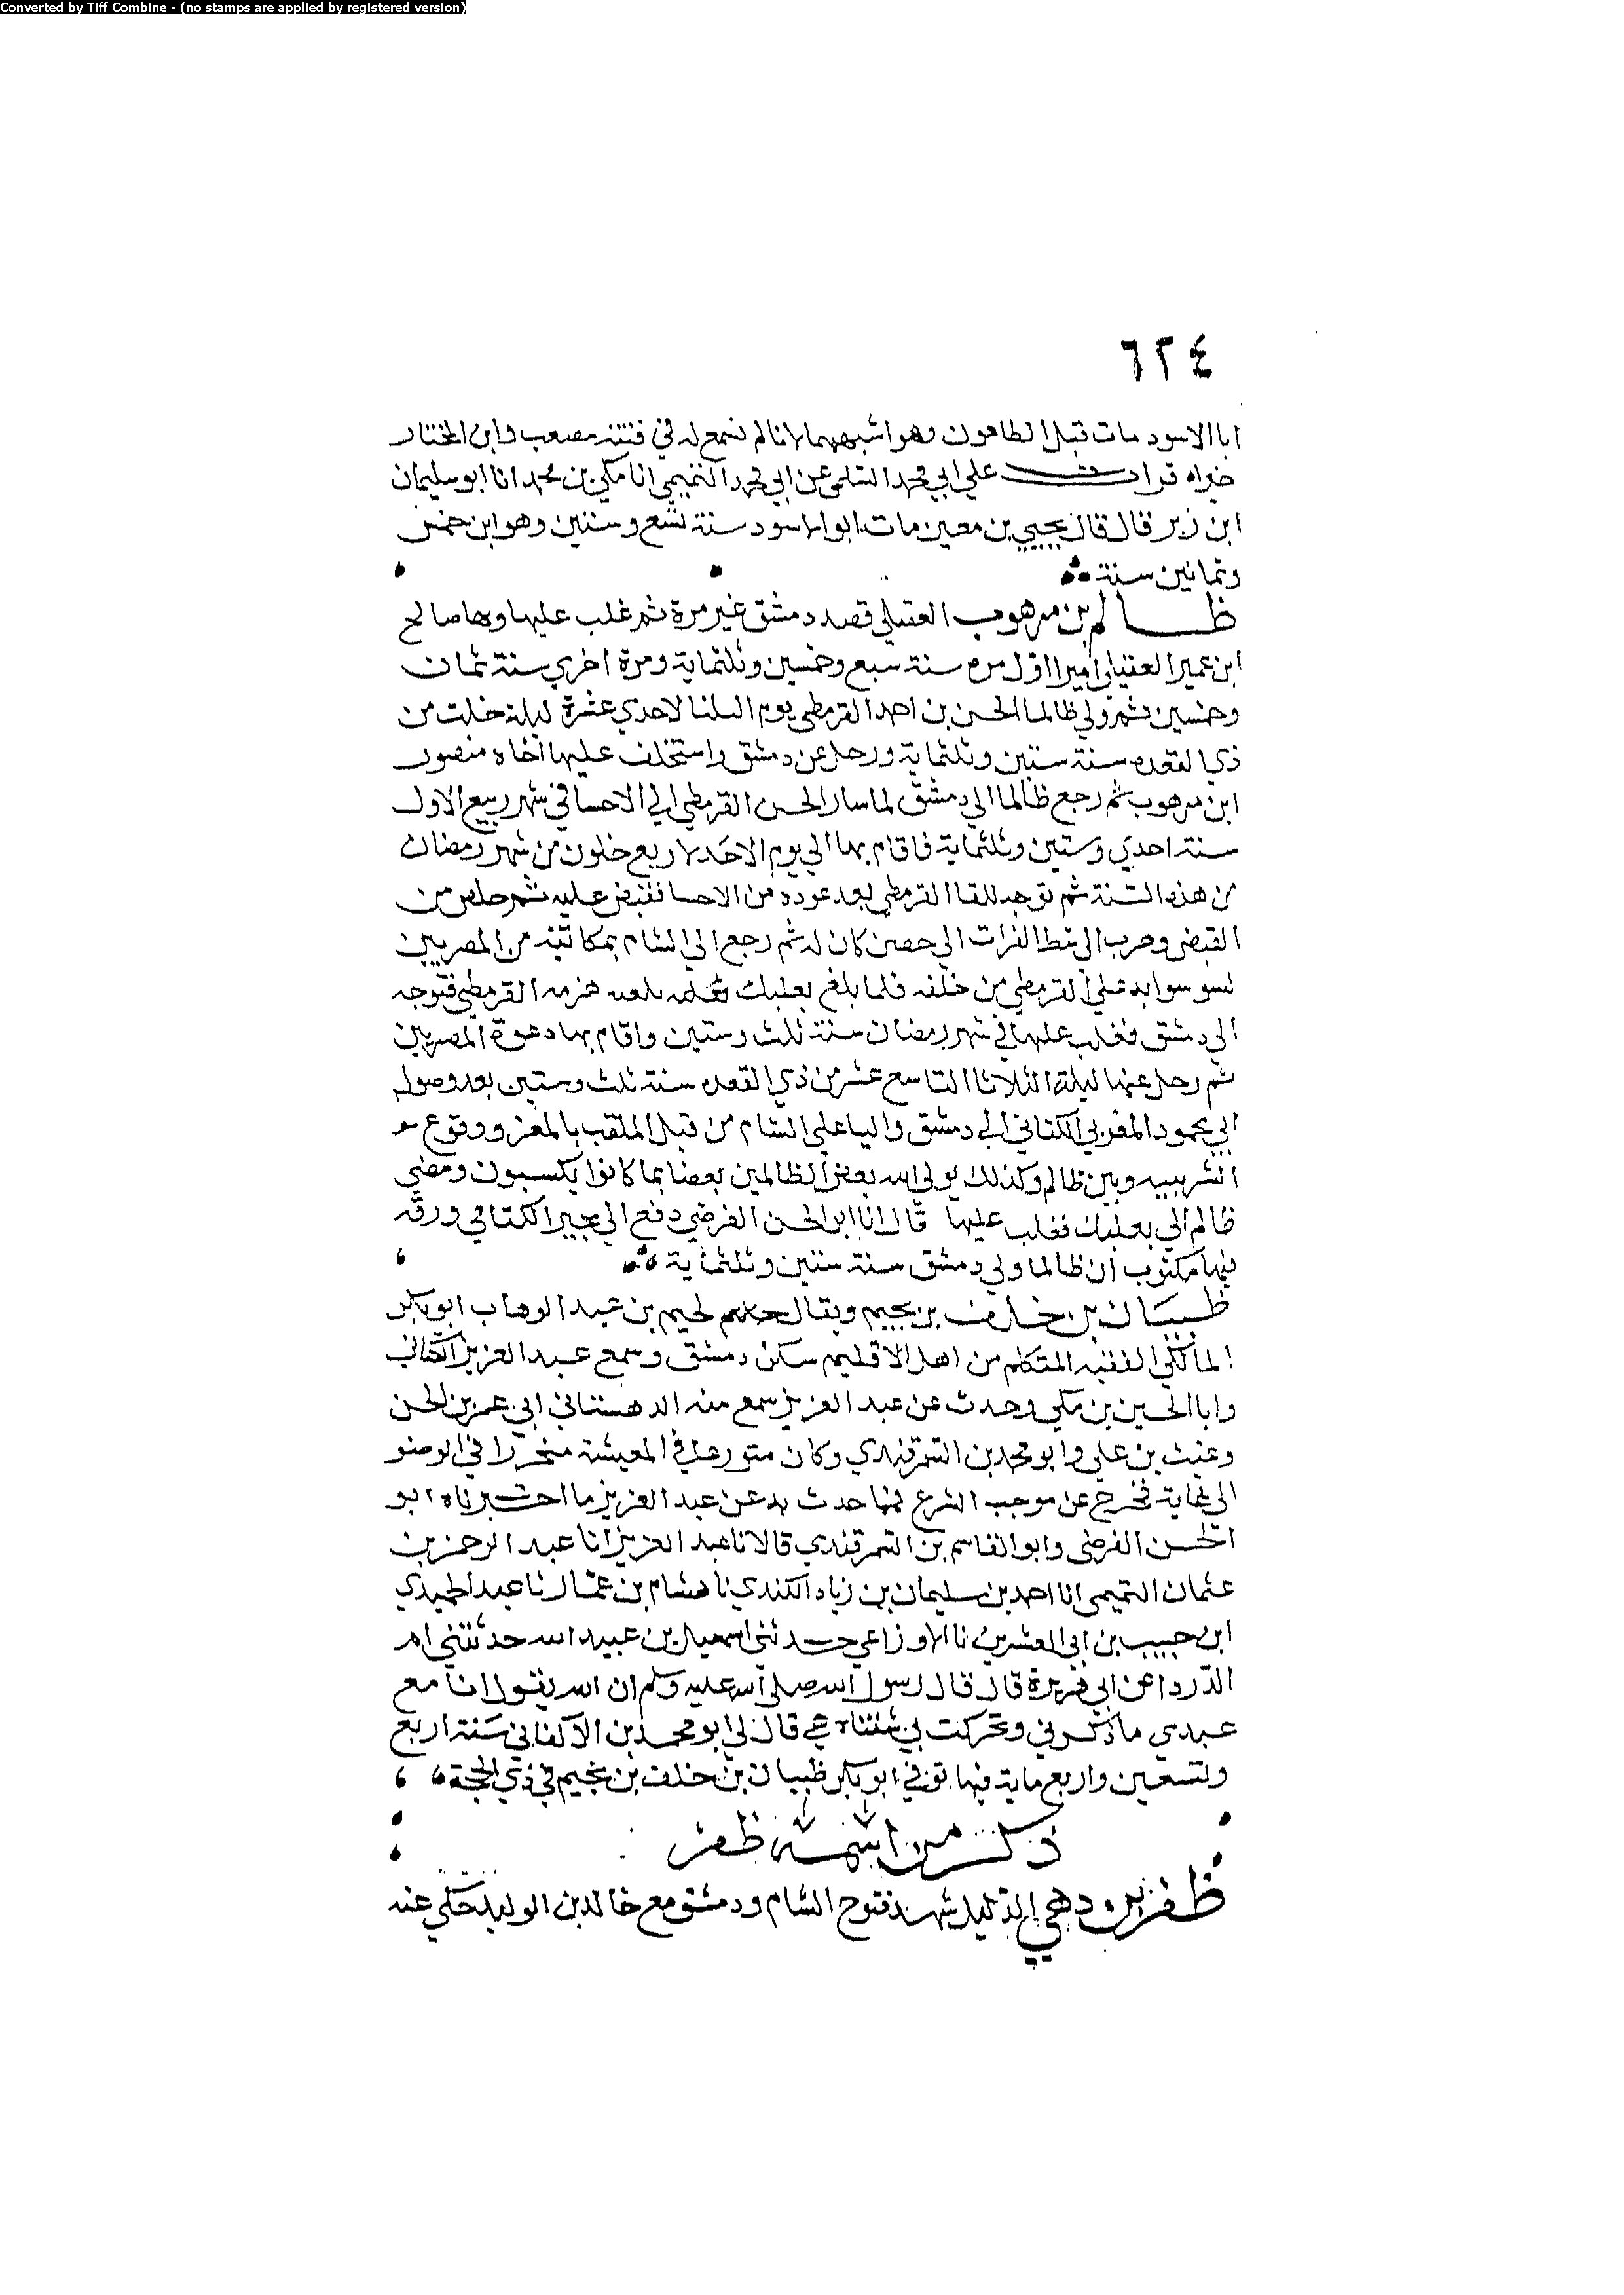 Converted by Tiff Combine - (no stamps are applied by registered version)
٦٢٤
ابا الاسود مات قبل الطاعون وهو اشبههما لانا لم نسمع له في فتنة مصعب وابن المختار
قرات على ابي محمد السلمي عن ابي محمد التميمي انا مكي بن محمد انا ابو سليمان
ابن زبر قال قال يحيي بن معين مات ابو الاسود سنة تسع وستين وهو ابن خمس
وثمانين سنة
ظالم بن مرهوب العقيلي قصد دمشق غير مرة ثم غلب عليها وبها صالح
ابن عمير العقيلي اميرا اول مره سنة سبع وخمسين وثلثماية ومرة اخري سنة ثمان
وخمسين ثم ولي ظالما الحسن بن احمد القرمطي يوم الثلثا لاحدي عشرة ليلة خلت من
ذي القعده سنة ستين وثلثماية ورحل عن دمشق واستخلف عليها اخاه منصور
ابن مرهوب ثم رجع ظالما الي دمشق لما سار الحسن القرمطي الي الاحسا في شهر ربيع الاول
سنة احدي وستين وثلثماية فاقام بها الي يوم الاحد لاربع خلون من شهر رمضان
من هذه السنة ثم توجه للقا القرمطي بعد عوده من الاحسا فقبض عليه ثم خلص من
القبض وهرب الي شط الفرات الي حصن كان له ثم رجع الي الشام بمكاتبة من المصريين
به علي القرمطي من خلفه فلما بلغ بعلبك هزمه القرمطي فتوجه
الي دمشق فغلب عليها في شهر رمضان سنة ثلث وستين واقام بها دعوة المصريين
ثم رحل عنها ليلة الثلاثا التاسع عشر من ذي القعده سنة ثلث وستين بعد وصول
ابي محمود المغربي الكتاني الي دمشق واليا علي الشام من قبل الملقب بالمعز ووقوع
الشر بينه وبين ظالم وكذلك يولي الله بعض الظالمين بعضا بما كانوا يكسبون ومضي
ظالم الي بعلبك فغلب عليها قال انا ابو الحسن الفرضي دفع الي مجير الكتامي ورقة
فيها مكتوب ان ظالما ولي دمشق سنة ستين وثلثماية
ظبيان بن خلف بن نجيم ويقال لجيم بن عبد الوهاب ابو بكر
المالكي الفقيه المتكلم من اهل الاقليم سكن دمشق وسمع عبد العزيز الكتاني
وابا الحسين بن مكي وحدث عن عبد العزيز سمع منه الدهستاني ابي عمر بن الحسن
وغيث بن علي وابو محمد بن السمرقندي وكان متورعا في المعيشة متحرزا في الوضو
الي غاية تخرج عن موجب الشرع فما حدث به عن عبد العزيز ما اخبرناه ابو
الحسن الفرضي وابو القاسم بن السمرقندي قالا نا عبد العزيز انا عبد الرحمن بن
عثمان التميمي انا احمد بن سليمان بن زياد الكندي نا هشام بن عمار نا عبد الحميدي
ابن حبيب بن ابي العشرين نا الاوزاعي حدثني اسمعيل بن عبيد الله حدثتني ام
الدردا عن ابي هريرة قال قال رسول الله صلي الله عليه وسلم ان الله يقول انا مع
عبدي ما ذكرني وتحركت بي شفتاه قال لي ابو محمد بن الاكفاني سنة اربع
وتسعين واربع ماية فيها توفي ابو بكر ظبيان بن خلف بن نجيم في ذي الحجة
ذكر من اسمه ظفر
ظفر بن دهي الدليل شهد فتوح الشام ودمشق مع خالد بن الوليد حكي عنه